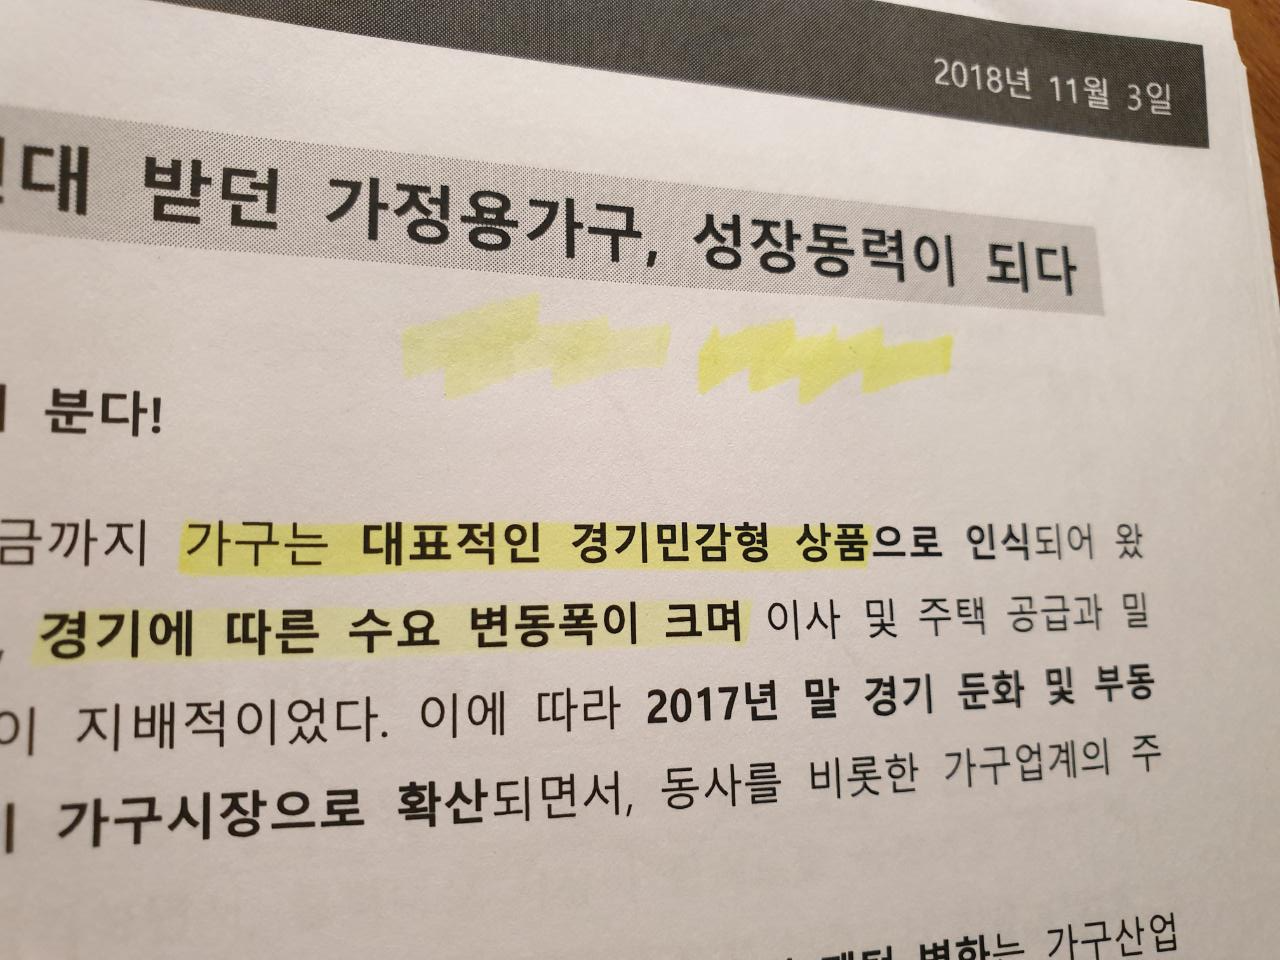 2018년 11월 3일
받던 가정용가구, 성장동력이 되다
분다!
가구는 대표적인 경기민감형 상품으로 인식되어 왔
경기에 따른 수요 변동폭이 크며 이사 및 주택 공급과 밀
이 지배적이었다. 이에 따라 2017년 말 경기 둔화 및 부동
가구시장으로 확산되면서, 동사를 비롯한 가구업계의 주
변화는 가구산업